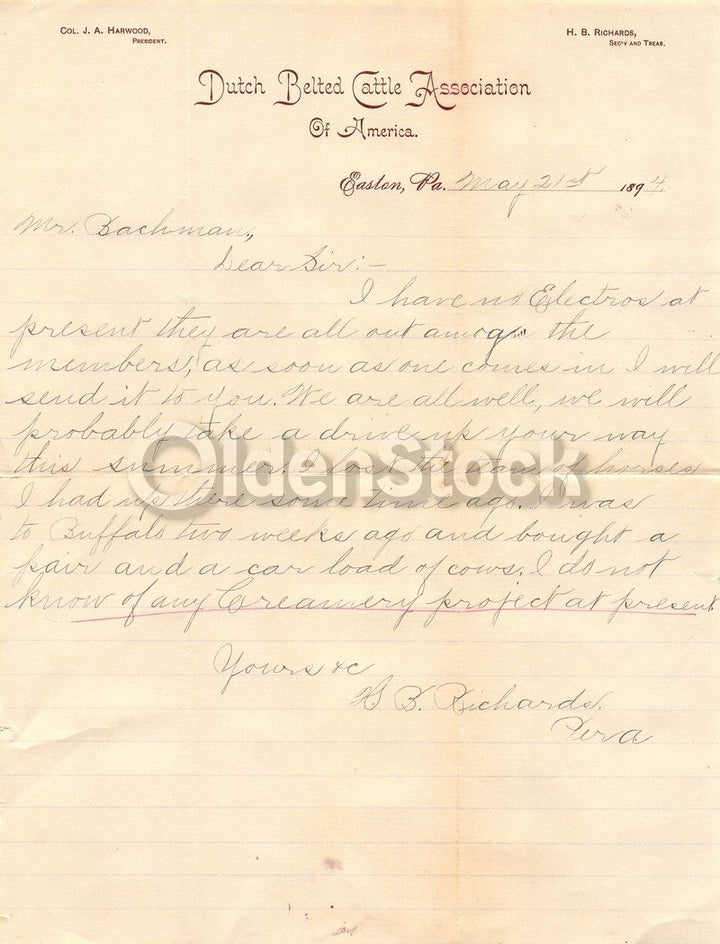 COL. J. A. HARWOOD,
PRESIDENT.
H. B. RICHARDS,
SEC'Y AND TREAS.
Dutch Belted Cattle Association
Of America.
Easton, Pa. May 21st 1894.
Mr. Bachman,
Dear Sir:-
I have no Electros at
present they are all out among the
members, as soon as one comes in I will
send it to you. We are all well, we will
probably take a drive up your way
this summer. I lost the team of horses
I had up there some time ago. I was
to Buffalo two weeks ago and bought a
pair and a car load of cows. I do not
know of any Creamery project at present.
Yours &c
H B. Richards.
OldenStock